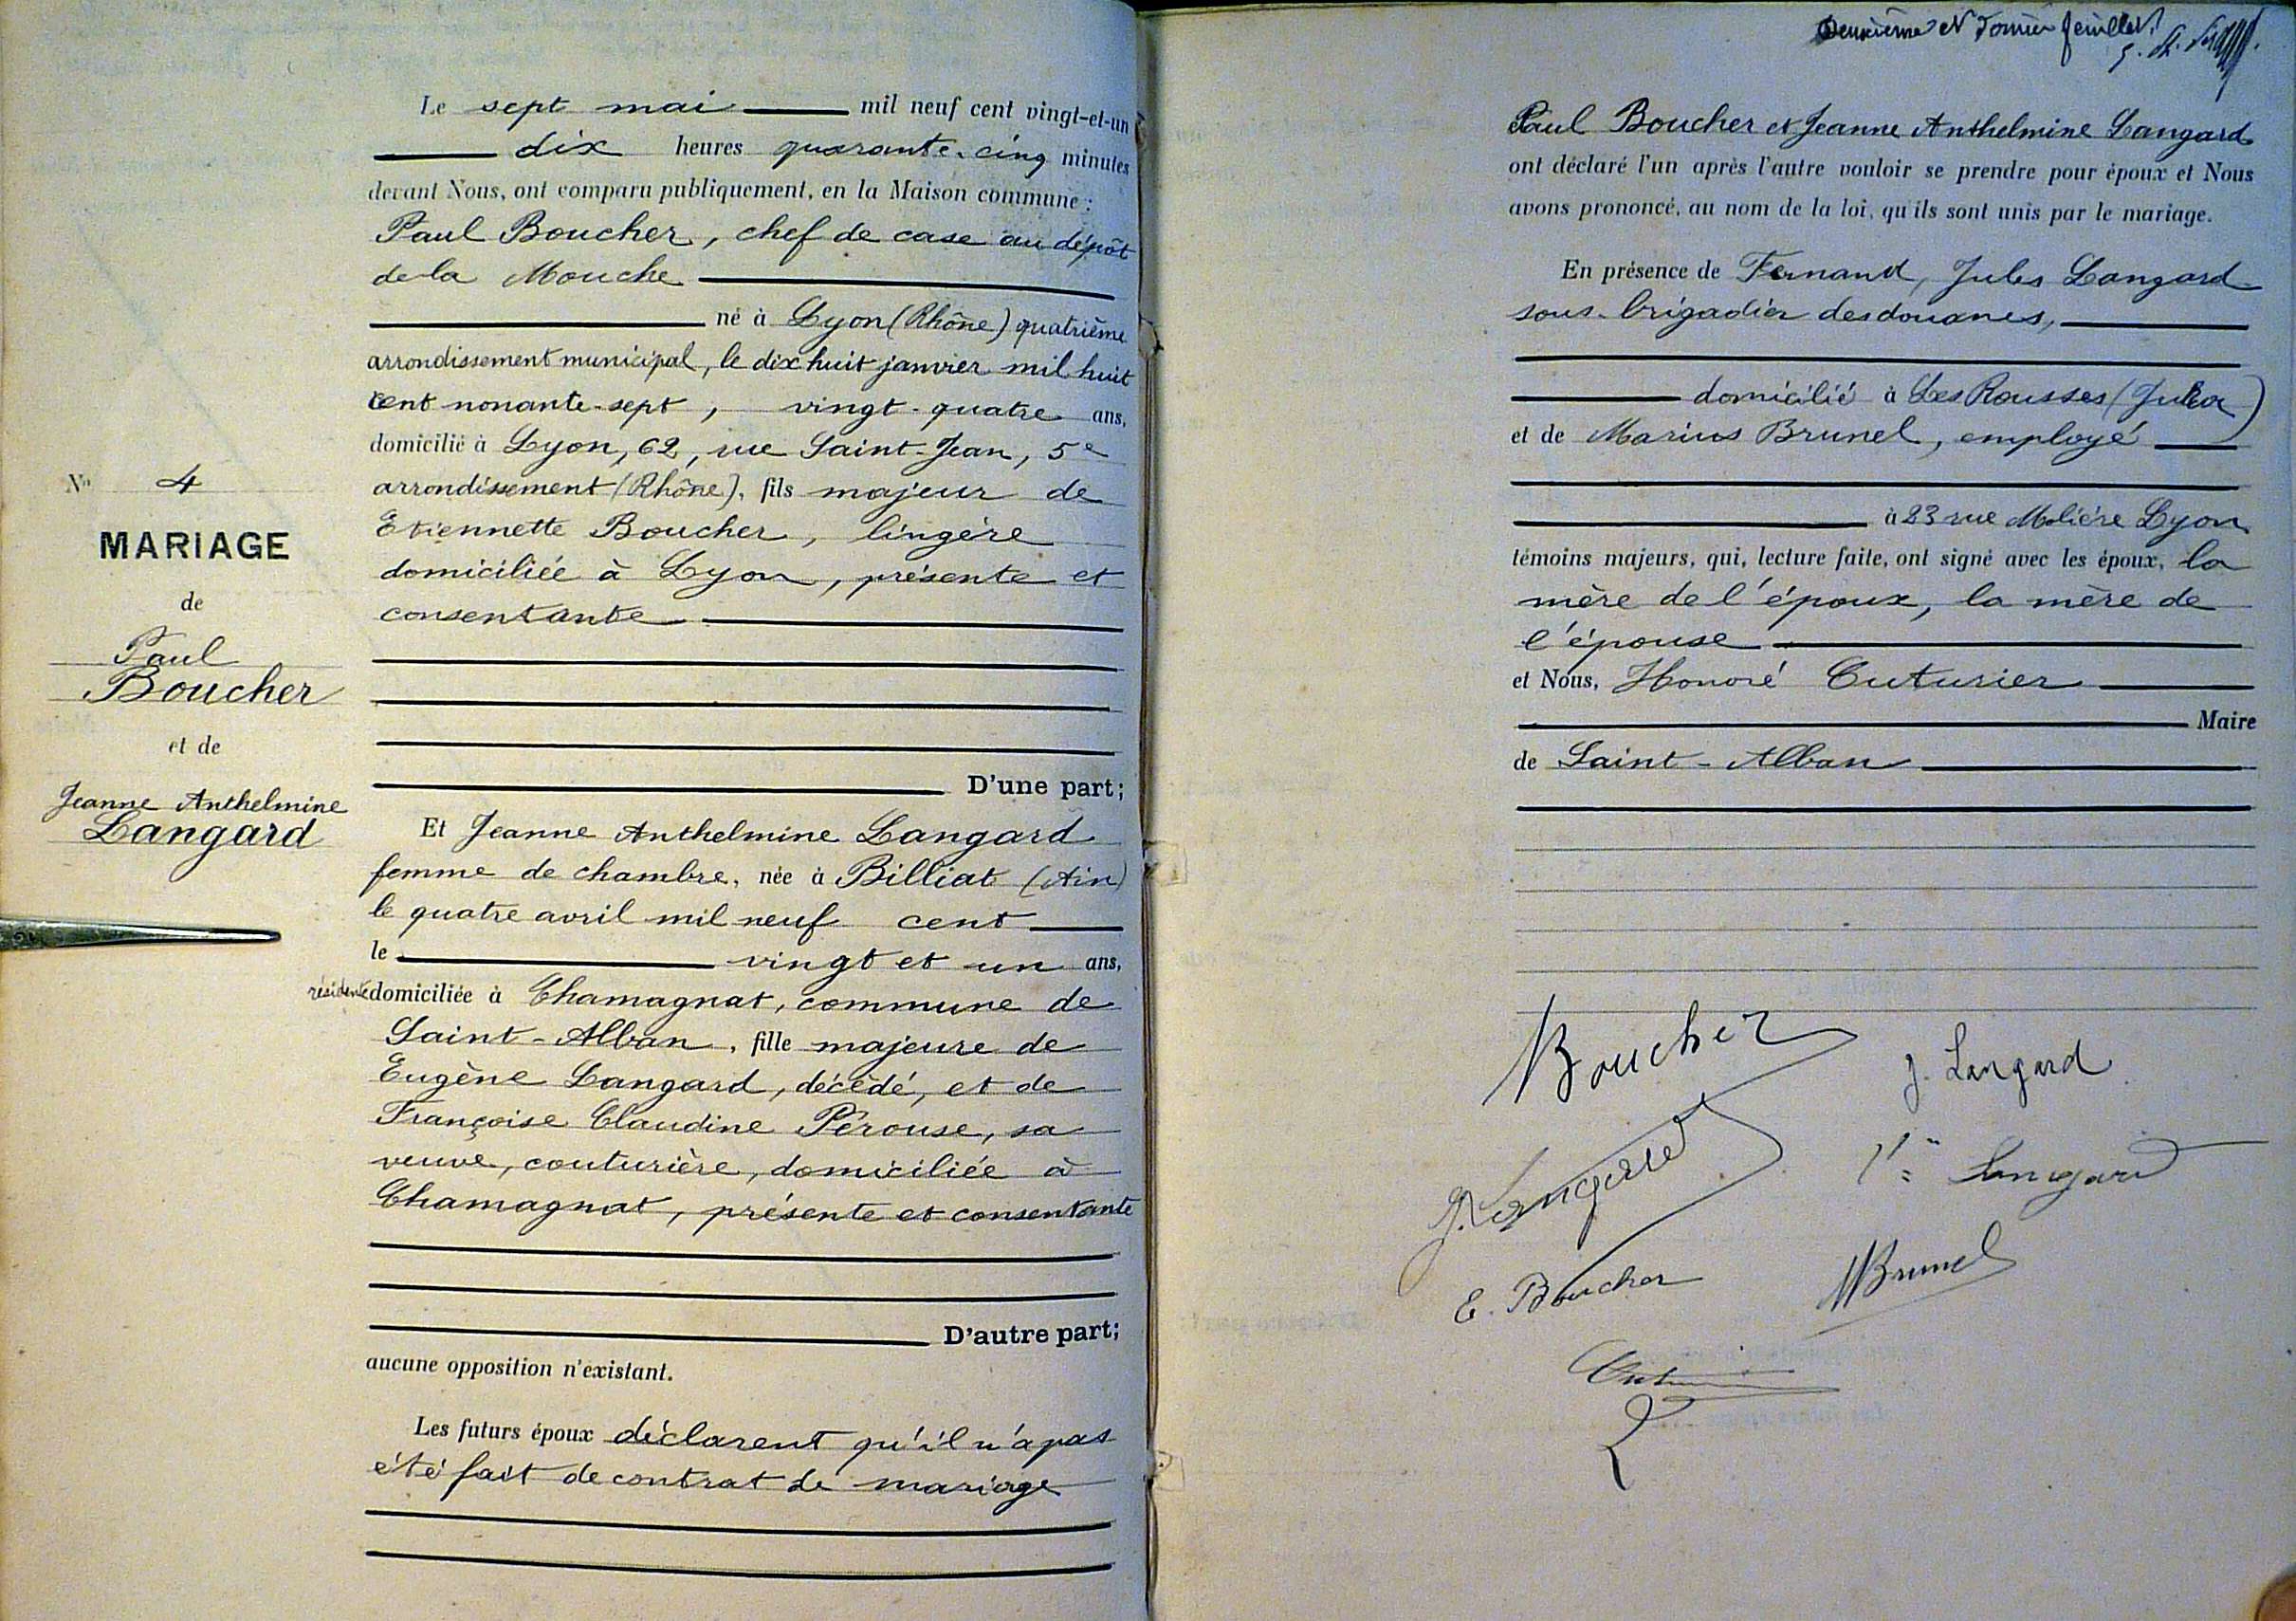 N° 4
MARIAGE
de
Paul
Boucher
et de
Jeanne Anthelmine
Langard
Le sept mai mil neuf cent vingt-et-un
dix heures quarante-cinq minutes
devant Nous, ont comparu publiquement, en la Maison commune :
Paul Boucher, chef de case au dépôt
de la Mouche
né à Lyon (Rhône) quatrième
arrondissement municipal, le dix huit janvier mil huit
cent nonante-sept, vingt-quatre ans,
domicilié à Lyon, 62, rue Saint-Jean, 5e
arrondissement (Rhône), fils majeur de
Etiennette Boucher, lingère
domiciliée à Lyon, présente et
consentante
D'une part;
Et Jeanne Anthelmine Langard
femme de chambre, née à Billiat (Ain)
le quatre avril mil neuf cent
le vingt et un ans,
résidente domiciliée à Chamagnat, commune de
Saint-Alban, fille majeure de
Eugène Langard, décédé, et de
Françoise Claudine Pérouse, sa
veuve, couturière, domiciliée à
Chamagnat, présente et consentante
D'autre part;
aucune opposition n'existant.
Les futurs époux déclarent qu'il n'a pas
été fait de contrat de mariage
Deuxième et dernier feuillet.
Paul Boucher et Jeanne Anthelmine Langard
ont déclaré l'un après l'autre vouloir se prendre pour époux et Nous
avons prononcé, au nom de la loi, qu'ils sont unis par le mariage.
En présence de Fernand, Jules Langard
sous-brigadier des douanes,
domicilié à Les Rousses (Jura)
et de Marius Brunel, employé
à 23 rue Molière Lyon
témoins majeurs, qui, lecture faite, ont signé avec les époux, la
mère de l'époux, la mère de
l'épouse
et Nous, Honoré Cuturier
Maire
de Saint-Alban
Boucher
J. Langard
J. Langard
Langard
E. Boucher
MBrunel